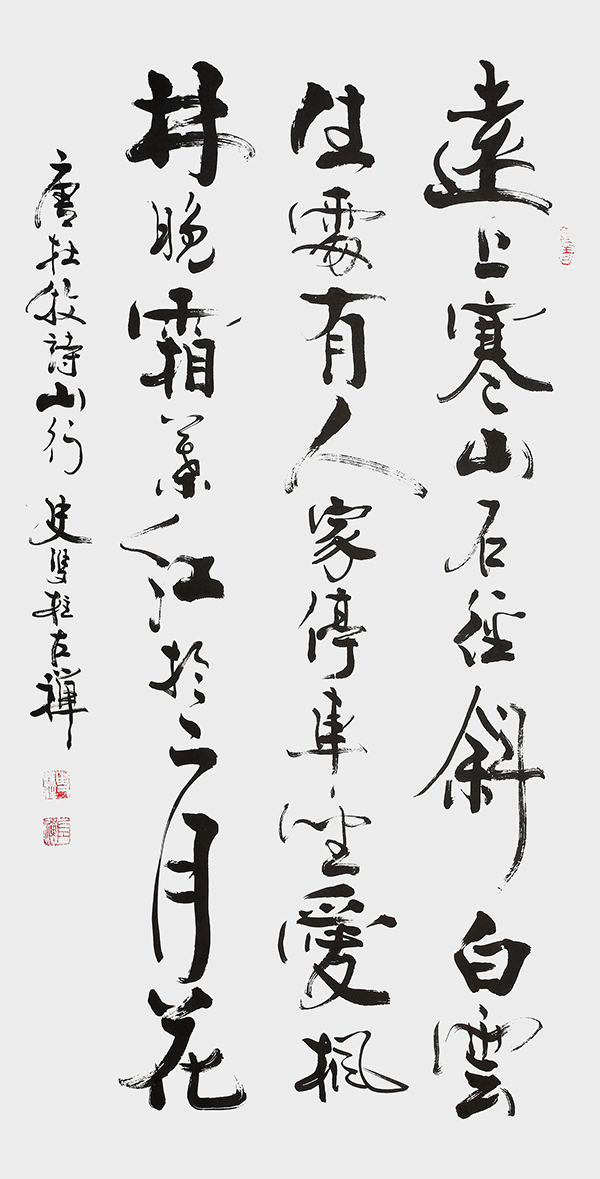 遠上寒山石徑斜白雲
生處有人家停車坐愛楓
林晚霜葉紅於二月花
唐杜牧詩山行 史雙柱古禪